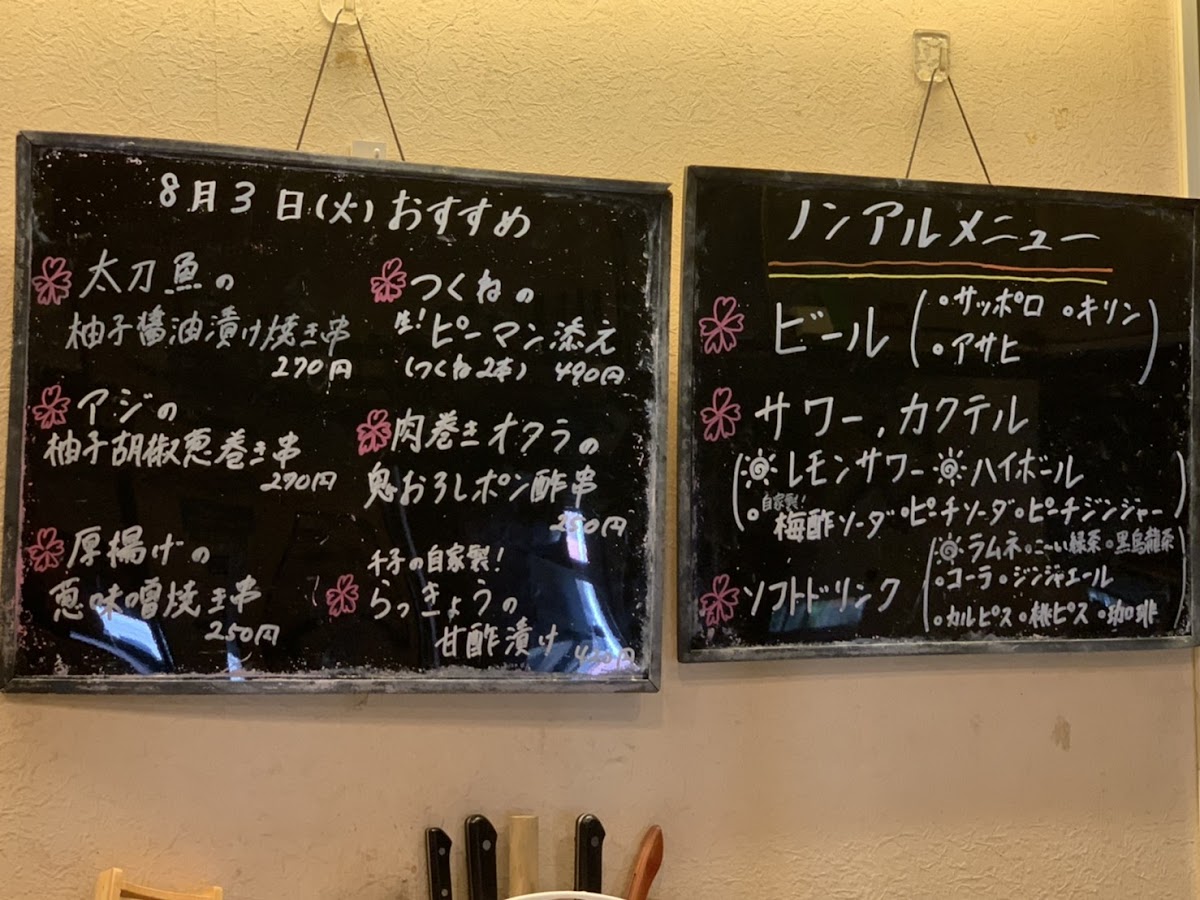 8月3日(火)おすすめ
太刀魚の
柚子醤油漬け焼き串
270円
アジの
柚子胡椒葱巻き串
290円
厚揚げの
葱味噌焼き串
250円
つくねの
生!ピーマン添え
(つくね2本) 490円
肉巻きオクラの
鬼おろしポン酢串
円
千子の自家製!
らっきょうの
甘酢漬け
ノンアルメニュー
ビール
(・サッポロ ・キリン
・アサヒ)
サワー,カクテル
(レモンサワー ハイボール
・自家製!
梅酢ソーダ・ピーチソーダ・ピーチジンジャー)
ソフトドリンク
(ラムネ・こ〜い緑茶・黒烏龍茶
・コーラ・ジンジャエール
・カルピス・桃ピス・珈琲)